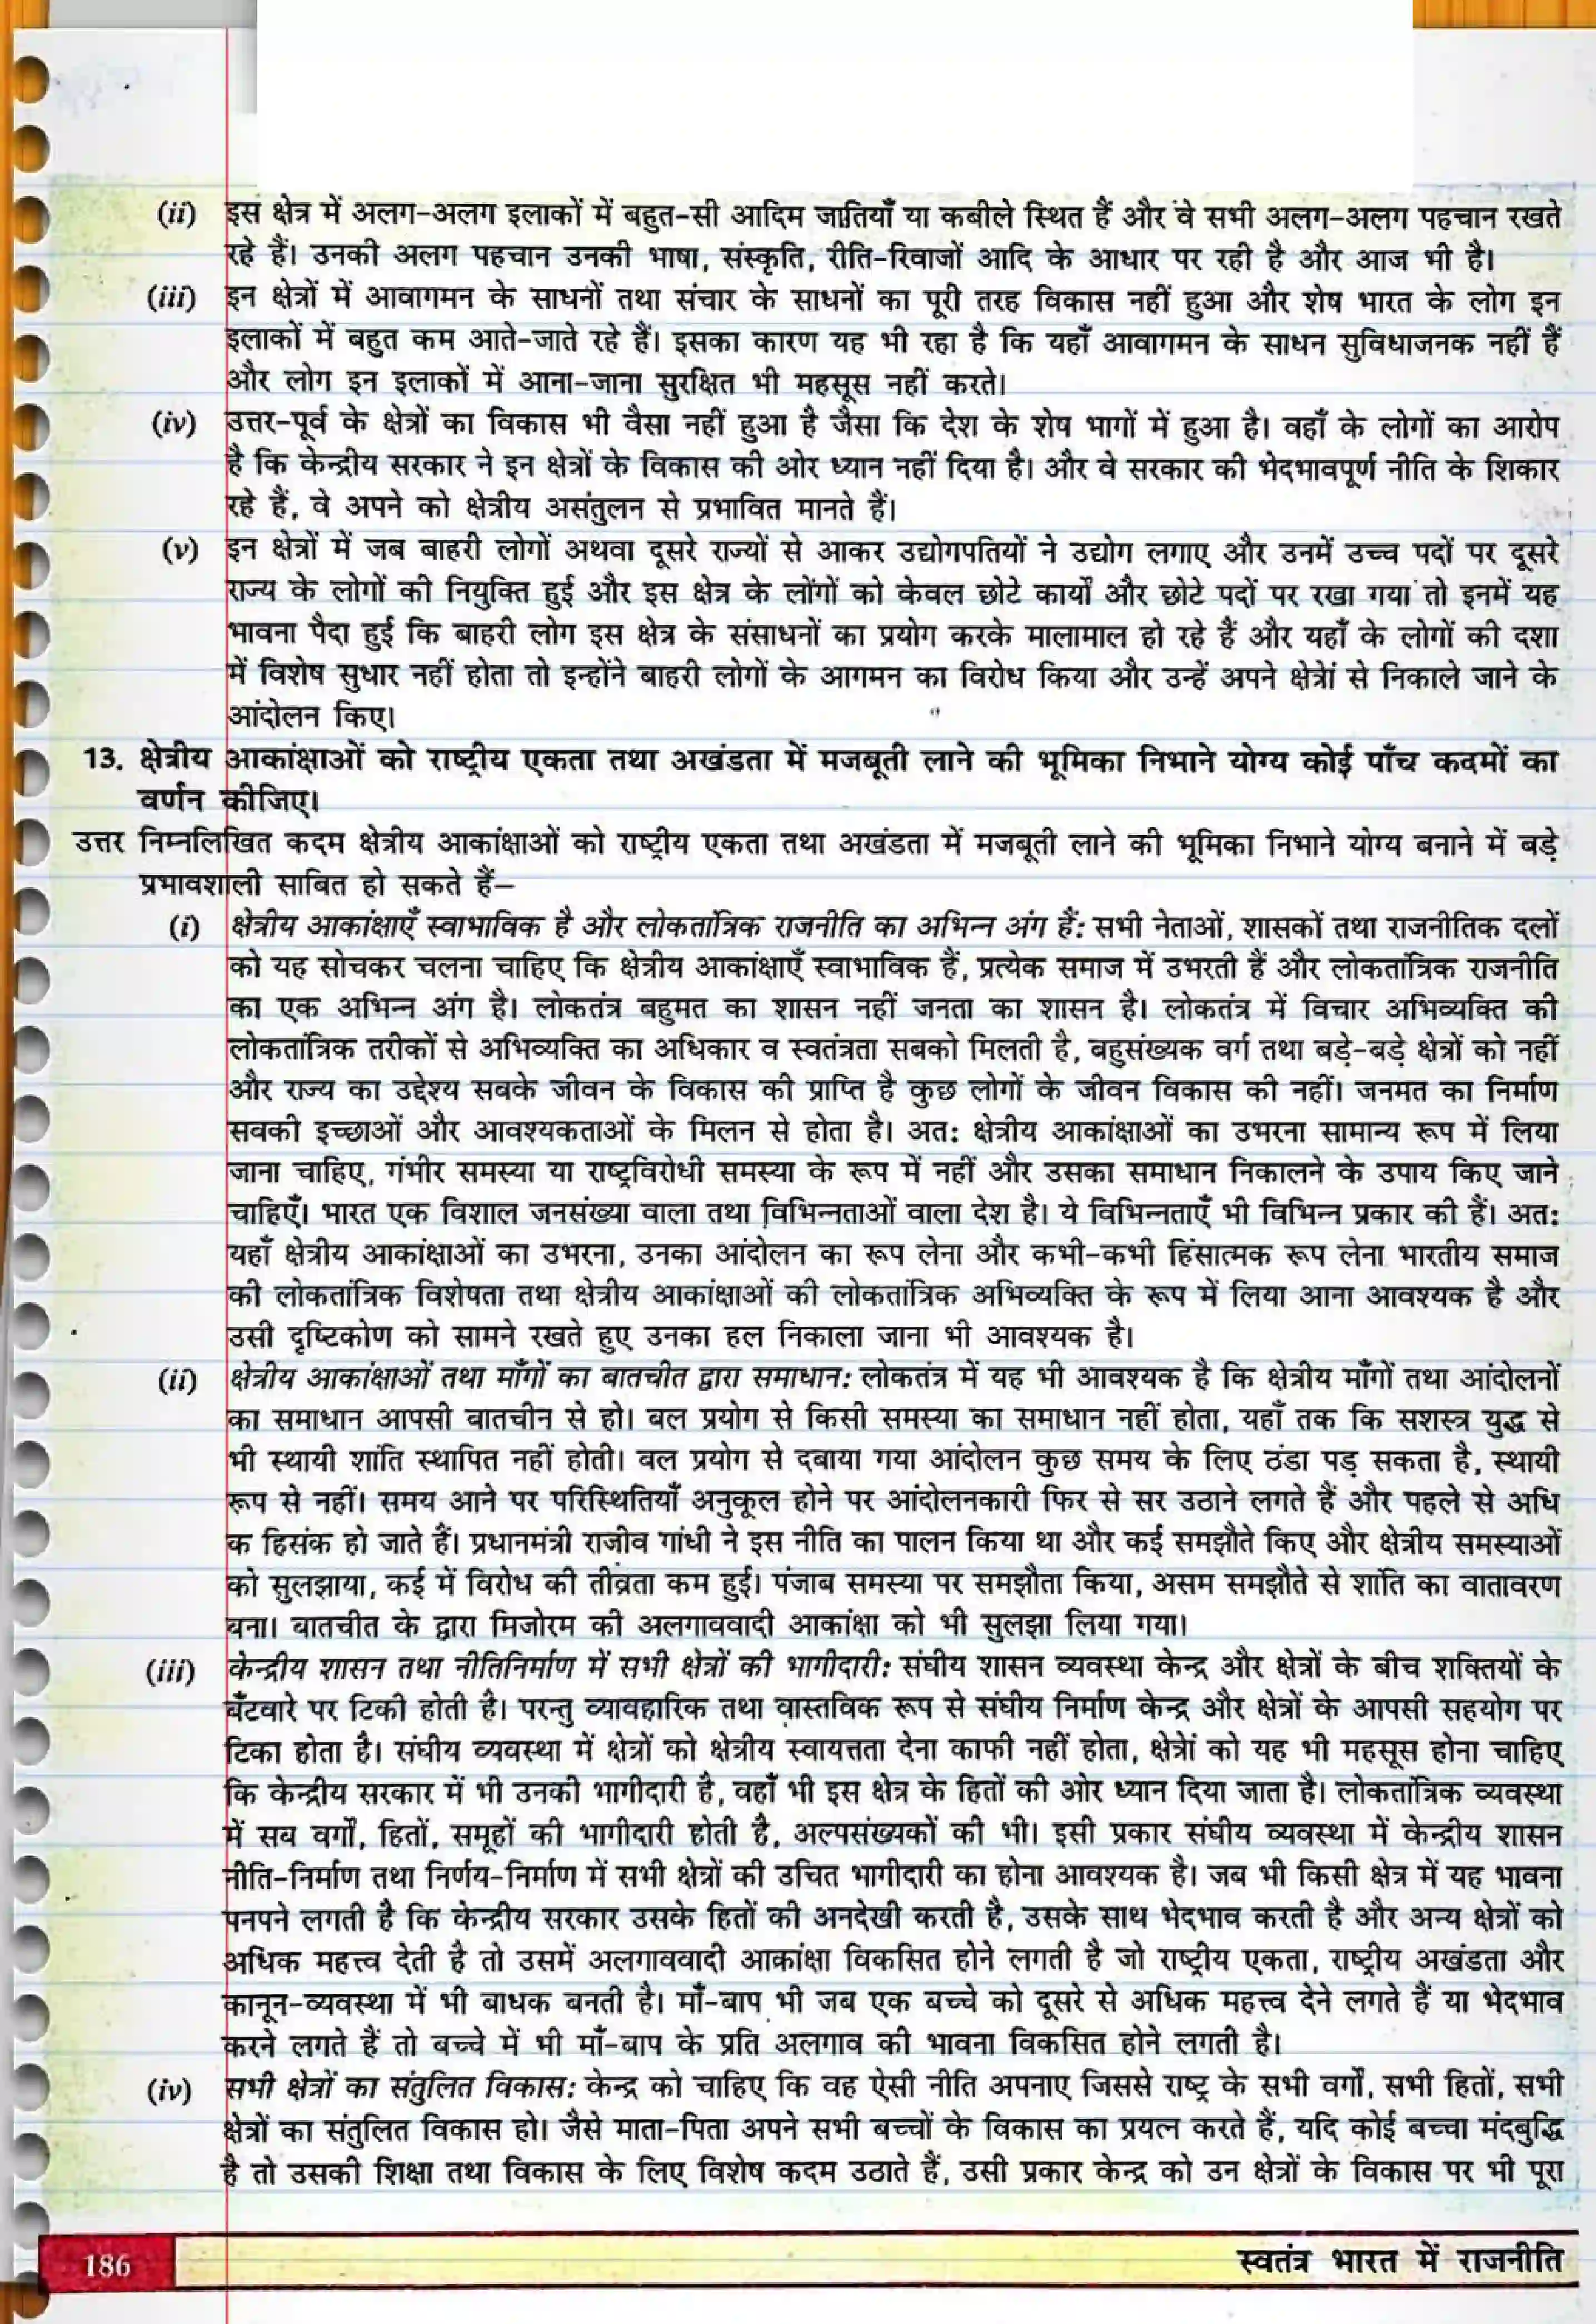 (ii) इस क्षेत्र में अलग-अलग इलाकों में बहुत-सी आदिम जातियाँ या कबीले स्थित हैं और वे सभी अलग-अलग पहचान रखते
रहे हैं। उनकी अलग पहचान उनकी भाषा, संस्कृति, रीति-रिवाजों आदि के आधार पर रही है और आज भी है।
(iii) इन क्षेत्रों में आवागमन के साधनों तथा संचार के साधनों का पूरी तरह विकास नहीं हुआ और शेष भारत के लोग इन
इलाकों में बहुत कम आते-जाते रहे हैं। इसका कारण यह भी रहा है कि यहाँ आवागमन के साधन सुविधाजनक नहीं हैं
और लोग इन इलाकों में आना-जाना सुरक्षित भी महसूस नहीं करते।
(iv) उत्तर-पूर्व के क्षेत्रों का विकास भी वैसा नहीं हुआ है जैसा कि देश के शेष भागों में हुआ है। वहाँ के लोगों का आरोप
है कि केन्द्रीय सरकार ने इन क्षेत्रों के विकास की ओर ध्यान नहीं दिया है। और वे सरकार की भेदभावपूर्ण नीति के शिकार
रहे हैं, वे अपने को क्षेत्रीय असंतुलन से प्रभावित मानते हैं।
(v) इन क्षेत्रों में जब बाहरी लोगों अथवा दूसरे राज्यों से आकर उद्योगपतियों ने उद्योग लगाए और उनमें उच्च पदों पर दूसरे
राज्य के लोगों की नियुक्ति हुई और इस क्षेत्र के लोंगों को केवल छोटे कार्यों और छोटे पदों पर रखा गया तो इनमें यह
भावना पैदा हुई कि बाहरी लोग इस क्षेत्र के संसाधनों का प्रयोग करके मालामाल हो रहे हैं और यहाँ के लोगों की दशा
में विशेष सुधार नहीं होता तो इन्होंने बाहरी लोगों के आगमन का विरोध किया और उन्हें अपने क्षेत्रों से निकाले जाने के
आंदोलन किए।
13. क्षेत्रीय आकांक्षाओं को राष्ट्रीय एकता तथा अखंडता में मजबूती लाने की भूमिका निभाने योग्य कोई पाँच कदमों का
वर्णन कीजिए।
उत्तर निम्नलिखित कदम क्षेत्रीय आकांक्षाओं को राष्ट्रीय एकता तथा अखंडता में मजबूती लाने की भूमिका निभाने योग्य बनाने में बड़े
प्रभावशाली साबित हो सकते हैं–
(i) क्षेत्रीय आकांक्षाएँ स्वाभाविक है और लोकतांत्रिक राजनीति का अभिन्न अंग हैं: सभी नेताओं, शासकों तथा राजनीतिक दलों
को यह सोचकर चलना चाहिए कि क्षेत्रीय आकांक्षाएँ स्वाभाविक हैं, प्रत्येक समाज में उभरती हैं और लोकतांत्रिक राजनीति
का एक अभिन्न अंग है। लोकतंत्र बहुमत का शासन नहीं जनता का शासन है। लोकतंत्र में विचार अभिव्यक्ति की
लोकतांत्रिक तरीकों से अभिव्यक्ति का अधिकार व स्वतंत्रता सबको मिलती है, बहुसंख्यक वर्ग तथा बड़े-बड़े क्षेत्रों को नहीं
और राज्य का उद्देश्य सबके जीवन के विकास की प्राप्ति है कुछ लोगों के जीवन विकास की नहीं। जनमत का निर्माण
सबकी इच्छाओं और आवश्यकताओं के मिलन से होता है। अत: क्षेत्रीय आकांक्षाओं का उभरना सामान्य रूप में लिया
जाना चाहिए, गंभीर समस्या या राष्ट्रविरोधी समस्या के रूप में नहीं और उसका समाधान निकालने के उपाय किए जाने
चाहिएँ। भारत एक विशाल जनसंख्या वाला तथा विभिन्नताओं वाला देश है। ये विभिन्नताएँ भी विभिन्न प्रकार की हैं। अत:
यहाँ क्षेत्रीय आकांक्षाओं का उभरना, उनका आंदोलन का रूप लेना और कभी-कभी हिंसात्मक रूप लेना भारतीय समाज
की लोकतांत्रिक विशेषता तथा क्षेत्रीय आकांक्षाओं की लोकतांत्रिक अभिव्यक्ति के रूप में लिया आना आवश्यक है और
उसी दृष्टिकोण को सामने रखते हुए उनका हल निकाला जाना भी आवश्यक है।
(ii) क्षेत्रीय आकांक्षाओं तथा माँगों का बातचीत द्वारा समाधान: लोकतंत्र में यह भी आवश्यक है कि क्षेत्रीय माँगों तथा आंदोलनों
का समाधान आपसी बातचीन से हो। बल प्रयोग से किसी समस्या का समाधान नहीं होता, यहाँ तक कि सशस्त्र युद्ध से
भी स्थायी शांति स्थापित नहीं होती। बल प्रयोग से दबाया गया आंदोलन कुछ समय के लिए ठंडा पड़ सकता है, स्थायी
रूप से नहीं। समय आने पर परिस्थितियाँ अनुकूल होने पर आंदोलनकारी फिर से सर उठाने लगते हैं और पहले से अधि
क हिसंक हो जाते हैं। प्रधानमंत्री राजीव गांधी ने इस नीति का पालन किया था और कई समझौते किए और क्षेत्रीय समस्याओं
को सुलझाया, कई में विरोध की तीव्रता कम हुई। पंजाब समस्या पर समझौता किया, असम समझौते से शांति का वातावरण
बना। बातचीत के द्वारा मिजोरम की अलगाववादी आकांक्षा को भी सुलझा लिया गया।
(iii) केन्द्रीय शासन तथा नीतिनिर्माण में सभी क्षेत्रों की भागीदारी: संघीय शासन व्यवस्था केन्द्र और क्षेत्रों के बीच शक्तियों के
बँटवारे पर टिकी होती है। परन्तु व्यावहारिक तथा वास्तविक रूप से संघीय निर्माण केन्द्र और क्षेत्रों के आपसी सहयोग पर
टिका होता है। संघीय व्यवस्था में क्षेत्रों को क्षेत्रीय स्वायत्तता देना काफी नहीं होता, क्षेत्रों को यह भी महसूस होना चाहिए
कि केन्द्रीय सरकार में भी उनकी भागीदारी है, वहाँ भी इस क्षेत्र के हितों की ओर ध्यान दिया जाता है। लोकतांत्रिक व्यवस्था
में सब वर्गों, हितों, समूहों की भागीदारी होती है, अल्पसंख्यकों की भी। इसी प्रकार संघीय व्यवस्था में केन्द्रीय शासन
नीति-निर्माण तथा निर्णय-निर्माण में सभी क्षेत्रों की उचित भागीदारी का होना आवश्यक है। जब भी किसी क्षेत्र में यह भावना
पनपने लगती है कि केन्द्रीय सरकार उसके हितों की अनदेखी करती है, उसके साथ भेदभाव करती है और अन्य क्षेत्रों को
अधिक महत्त्व देती है तो उसमें अलगाववादी आकांक्षा विकसित होने लगती है जो राष्ट्रीय एकता, राष्ट्रीय अखंडता और
कानून-व्यवस्था में भी बाधक बनती है। माँ-बाप भी जब एक बच्चे को दूसरे से अधिक महत्त्व देने लगते हैं या भेदभाव
करने लगते हैं तो बच्चे में भी माँ-बाप के प्रति अलगाव की भावना विकसित होने लगती है।
(iv) सभी क्षेत्रों का संतुलित विकास: केन्द्र को चाहिए कि वह ऐसी नीति अपनाए जिससे राष्ट्र के सभी वर्गों, सभी हितों, सभी
क्षेत्रों का संतुलित विकास हो। जैसे माता-पिता अपने सभी बच्चों के विकास का प्रयत्न करते हैं, यदि कोई बच्चा मंदबुद्धि
है तो उसकी शिक्षा तथा विकास के लिए विशेष कदम उठाते हैं, उसी प्रकार केन्द्र को उन क्षेत्रों के विकास पर भी पूरा
186
स्वतंत्र भारत में राजनीति